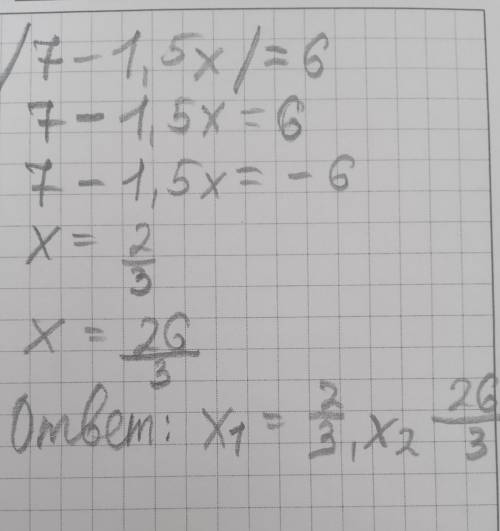 /7 - 1,5x/ = 6
7 - 1,5x = 6
7 - 1,5x = - 6
x = 2/3
x = 26/3
Ответ: x₁ = 2/3, x₂ 26/3